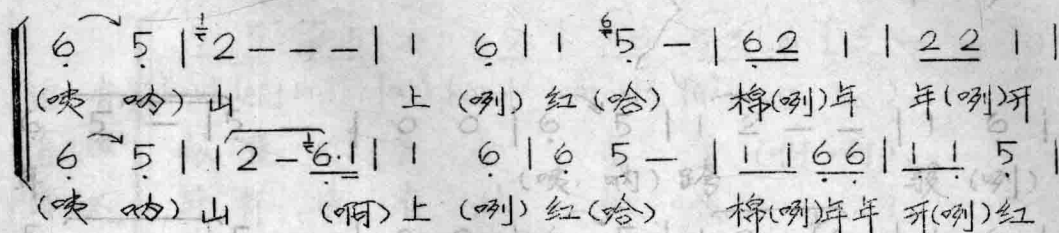 6 5 | 2 - - - | 1 6 | 1 5 - | 6 2 1 | 2 2 1 |
(咦 呐) 山 上 (咧) 红 (哈) 棉(咧)年 年(咧)开
6 5 | 1 2 - 6·1 | 1 6 | 6 5 - | 1 1 6 6 | 1 1 5 |
(咦 呐) 山 (啊) 上 (咧) 红 (哈) 棉(咧)年年 开(咧)红